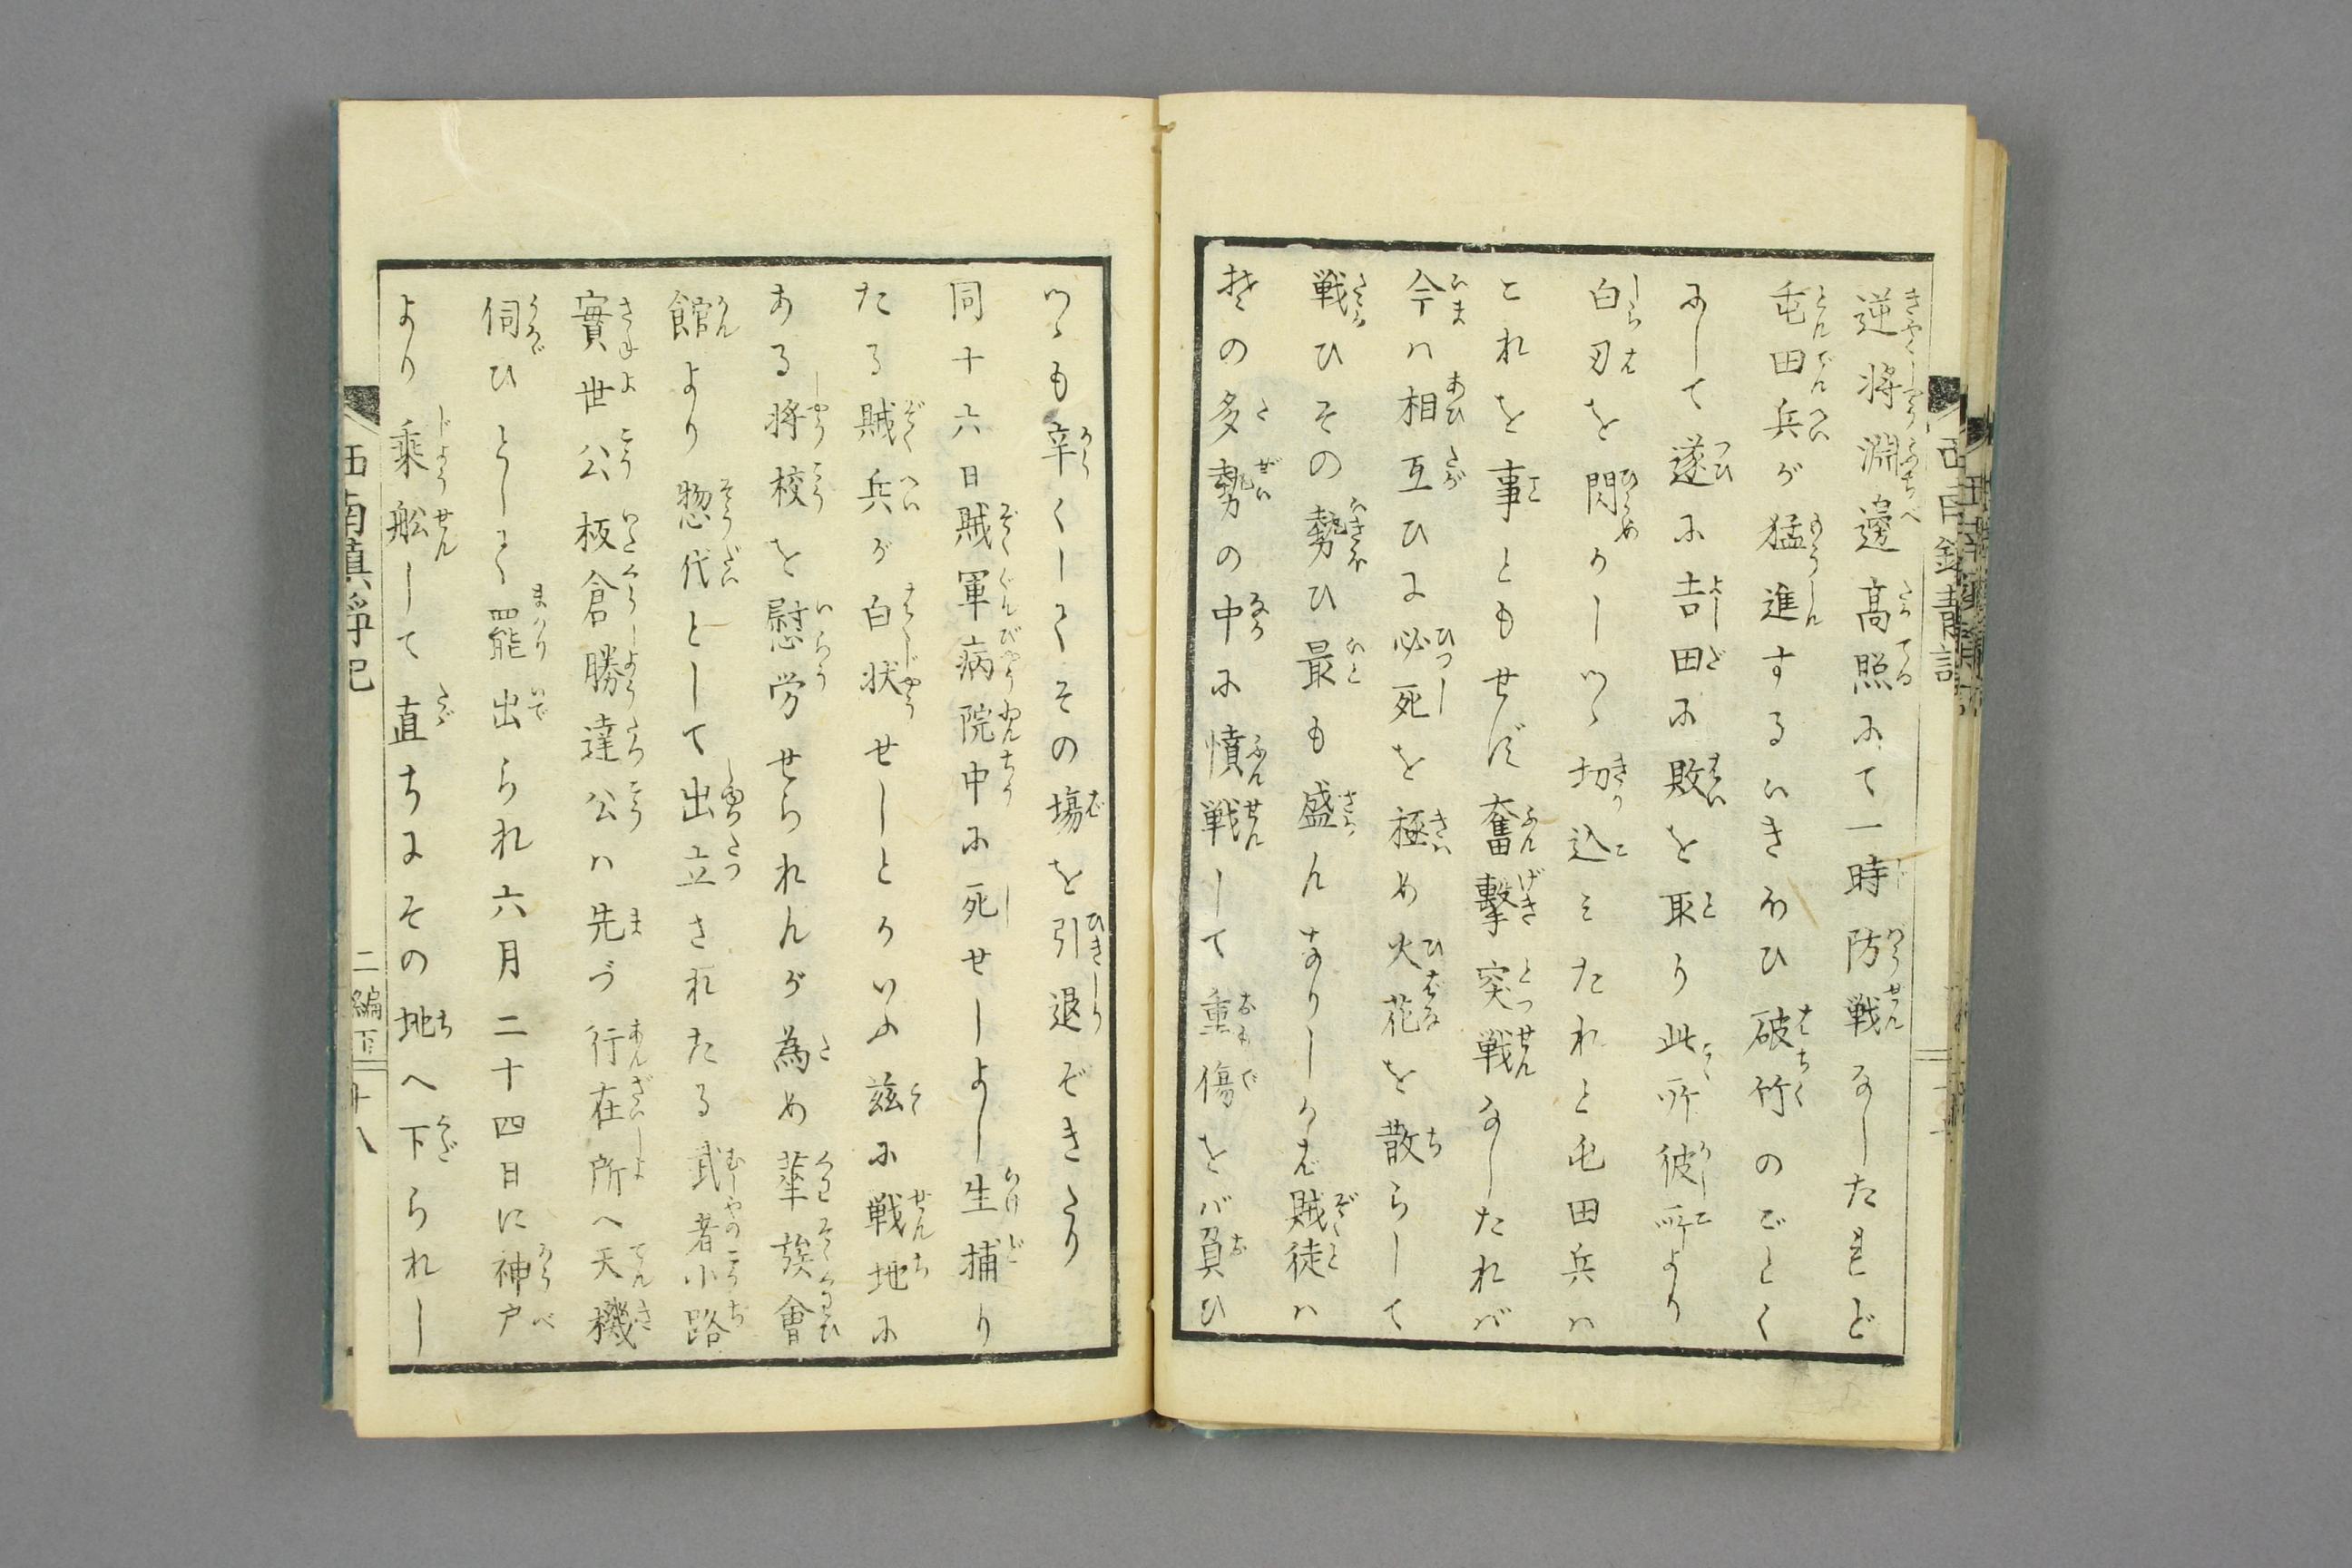 逆将渕邊髙照ふて一時防戦なしたれど
屯田兵が猛進するいきほひ破竹のごとく
ふして遂ふ吉田ふ敗を取り此所彼所より
白刃を閃かしつゝ切込ミたれと屯田兵ハ
これを事ともせず奮撃突戦なしたれバ
今ハ相互ひに必死を極め火花を散らして
戦ひその勢ひ最も盛んなりしかば賊徒ハ
其の多勢の中ふ憤戦して重傷をバ負ひ
つゝも辛くしてその塲を引退ぞきたり
同十六日賊軍病院中ふ死せしよし生捕り
たる賊兵が白状せしとかいふ茲ふ戦地ふ
ある将校を慰労せられんが為め華族會
館より惣代として出立されたる武者小路
實世公板倉勝達公ハ先づ行在所へ天機
伺ひとして罷出られ六月二十四日に神戸
より乘舩して直ちにその地へ下られし
西南鎮静記 二編下 十八